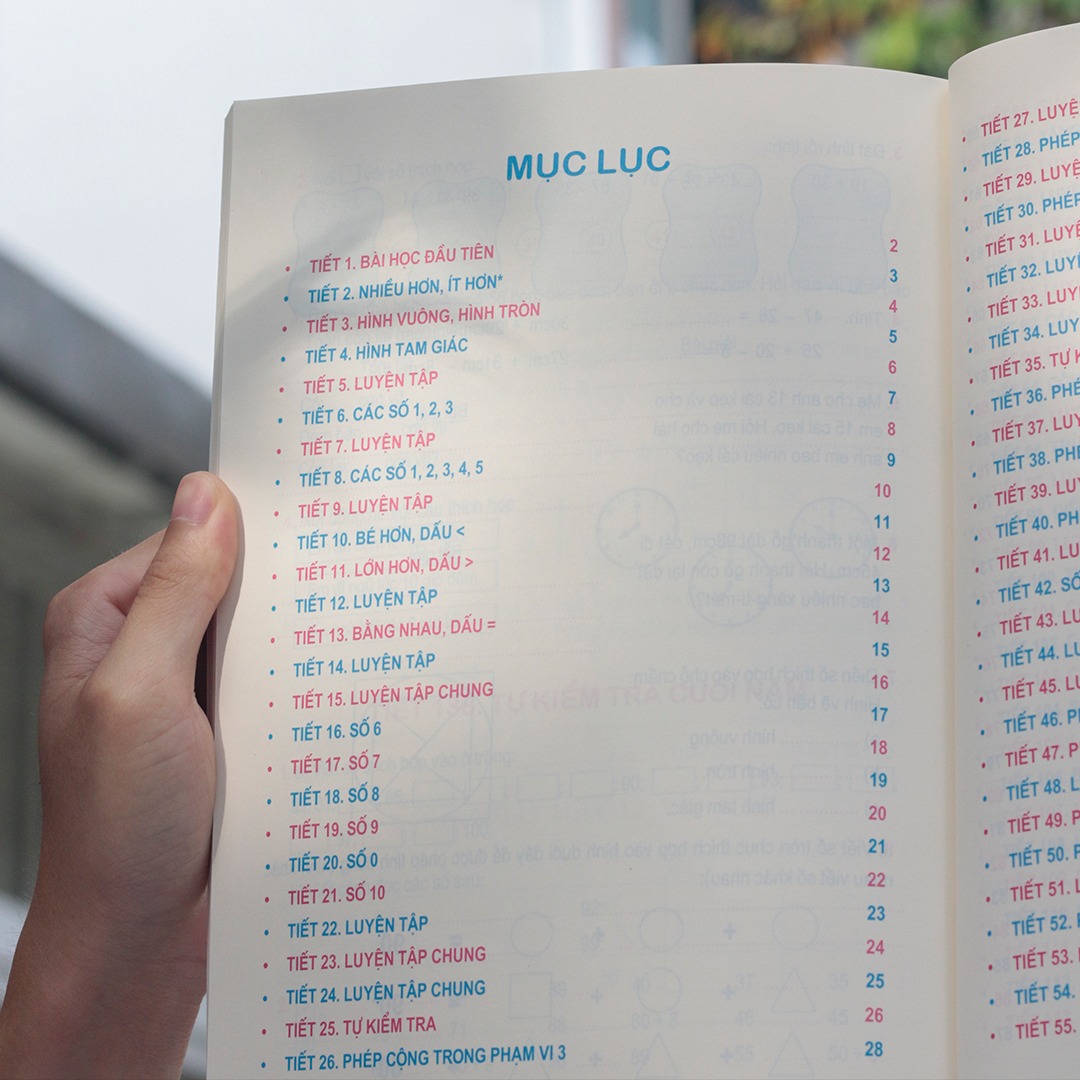 MỤC LỤC
• TIẾT 1. BÀI HỌC ĐẦU TIÊN 2
• TIẾT 2. NHIỀU HƠN, ÍT HƠN* 3
• TIẾT 3. HÌNH VUÔNG, HÌNH TRÒN 4
• TIẾT 4. HÌNH TAM GIÁC 5
• TIẾT 5. LUYỆN TẬP 6
• TIẾT 6. CÁC SỐ 1, 2, 3 7
• TIẾT 7. LUYỆN TẬP 8
• TIẾT 8. CÁC SỐ 1, 2, 3, 4, 5 9
• TIẾT 9. LUYỆN TẬP 10
• TIẾT 10. BÉ HƠN, DẤU < 11
• TIẾT 11. LỚN HƠN, DẤU > 12
• TIẾT 12. LUYỆN TẬP 13
• TIẾT 13. BẰNG NHAU, DẤU = 14
• TIẾT 14. LUYỆN TẬP 15
• TIẾT 15. LUYỆN TẬP CHUNG 16
• TIẾT 16. SỐ 6 17
• TIẾT 17. SỐ 7 18
• TIẾT 18. SỐ 8 19
• TIẾT 19. SỐ 9 20
• TIẾT 20. SỐ 0 21
• TIẾT 21. SỐ 10 22
• TIẾT 22. LUYỆN TẬP 23
• TIẾT 23. LUYỆN TẬP CHUNG 24
• TIẾT 24. LUYỆN TẬP CHUNG 25
• TIẾT 25. TỰ KIỂM TRA 26
• TIẾT 26. PHÉP CỘNG TRONG PHẠM VI 3 28
• TIẾT 27.
• TIẾT 28. PHÉP
• TIẾT 29.
• TIẾT 30. PHÉP
• TIẾT 31.
• TIẾT 32.
• TIẾT 33.
• TIẾT 34.
• TIẾT 35. TỰ
• TIẾT 36.
• TIẾT 37.
• TIẾT 38.
• TIẾT 39.
• TIẾT 40.
• TIẾT 41.
• TIẾT 42. SỐ
• TIẾT 43.
• TIẾT 44.
• TIẾT 45.
• TIẾT 46.
• TIẾT 47.
• TIẾT 48.
• TIẾT 49.
• TIẾT 50.
• TIẾT 51.
• TIẾT 52.
• TIẾT 53.
• TIẾT 54.
• TIẾT 55.